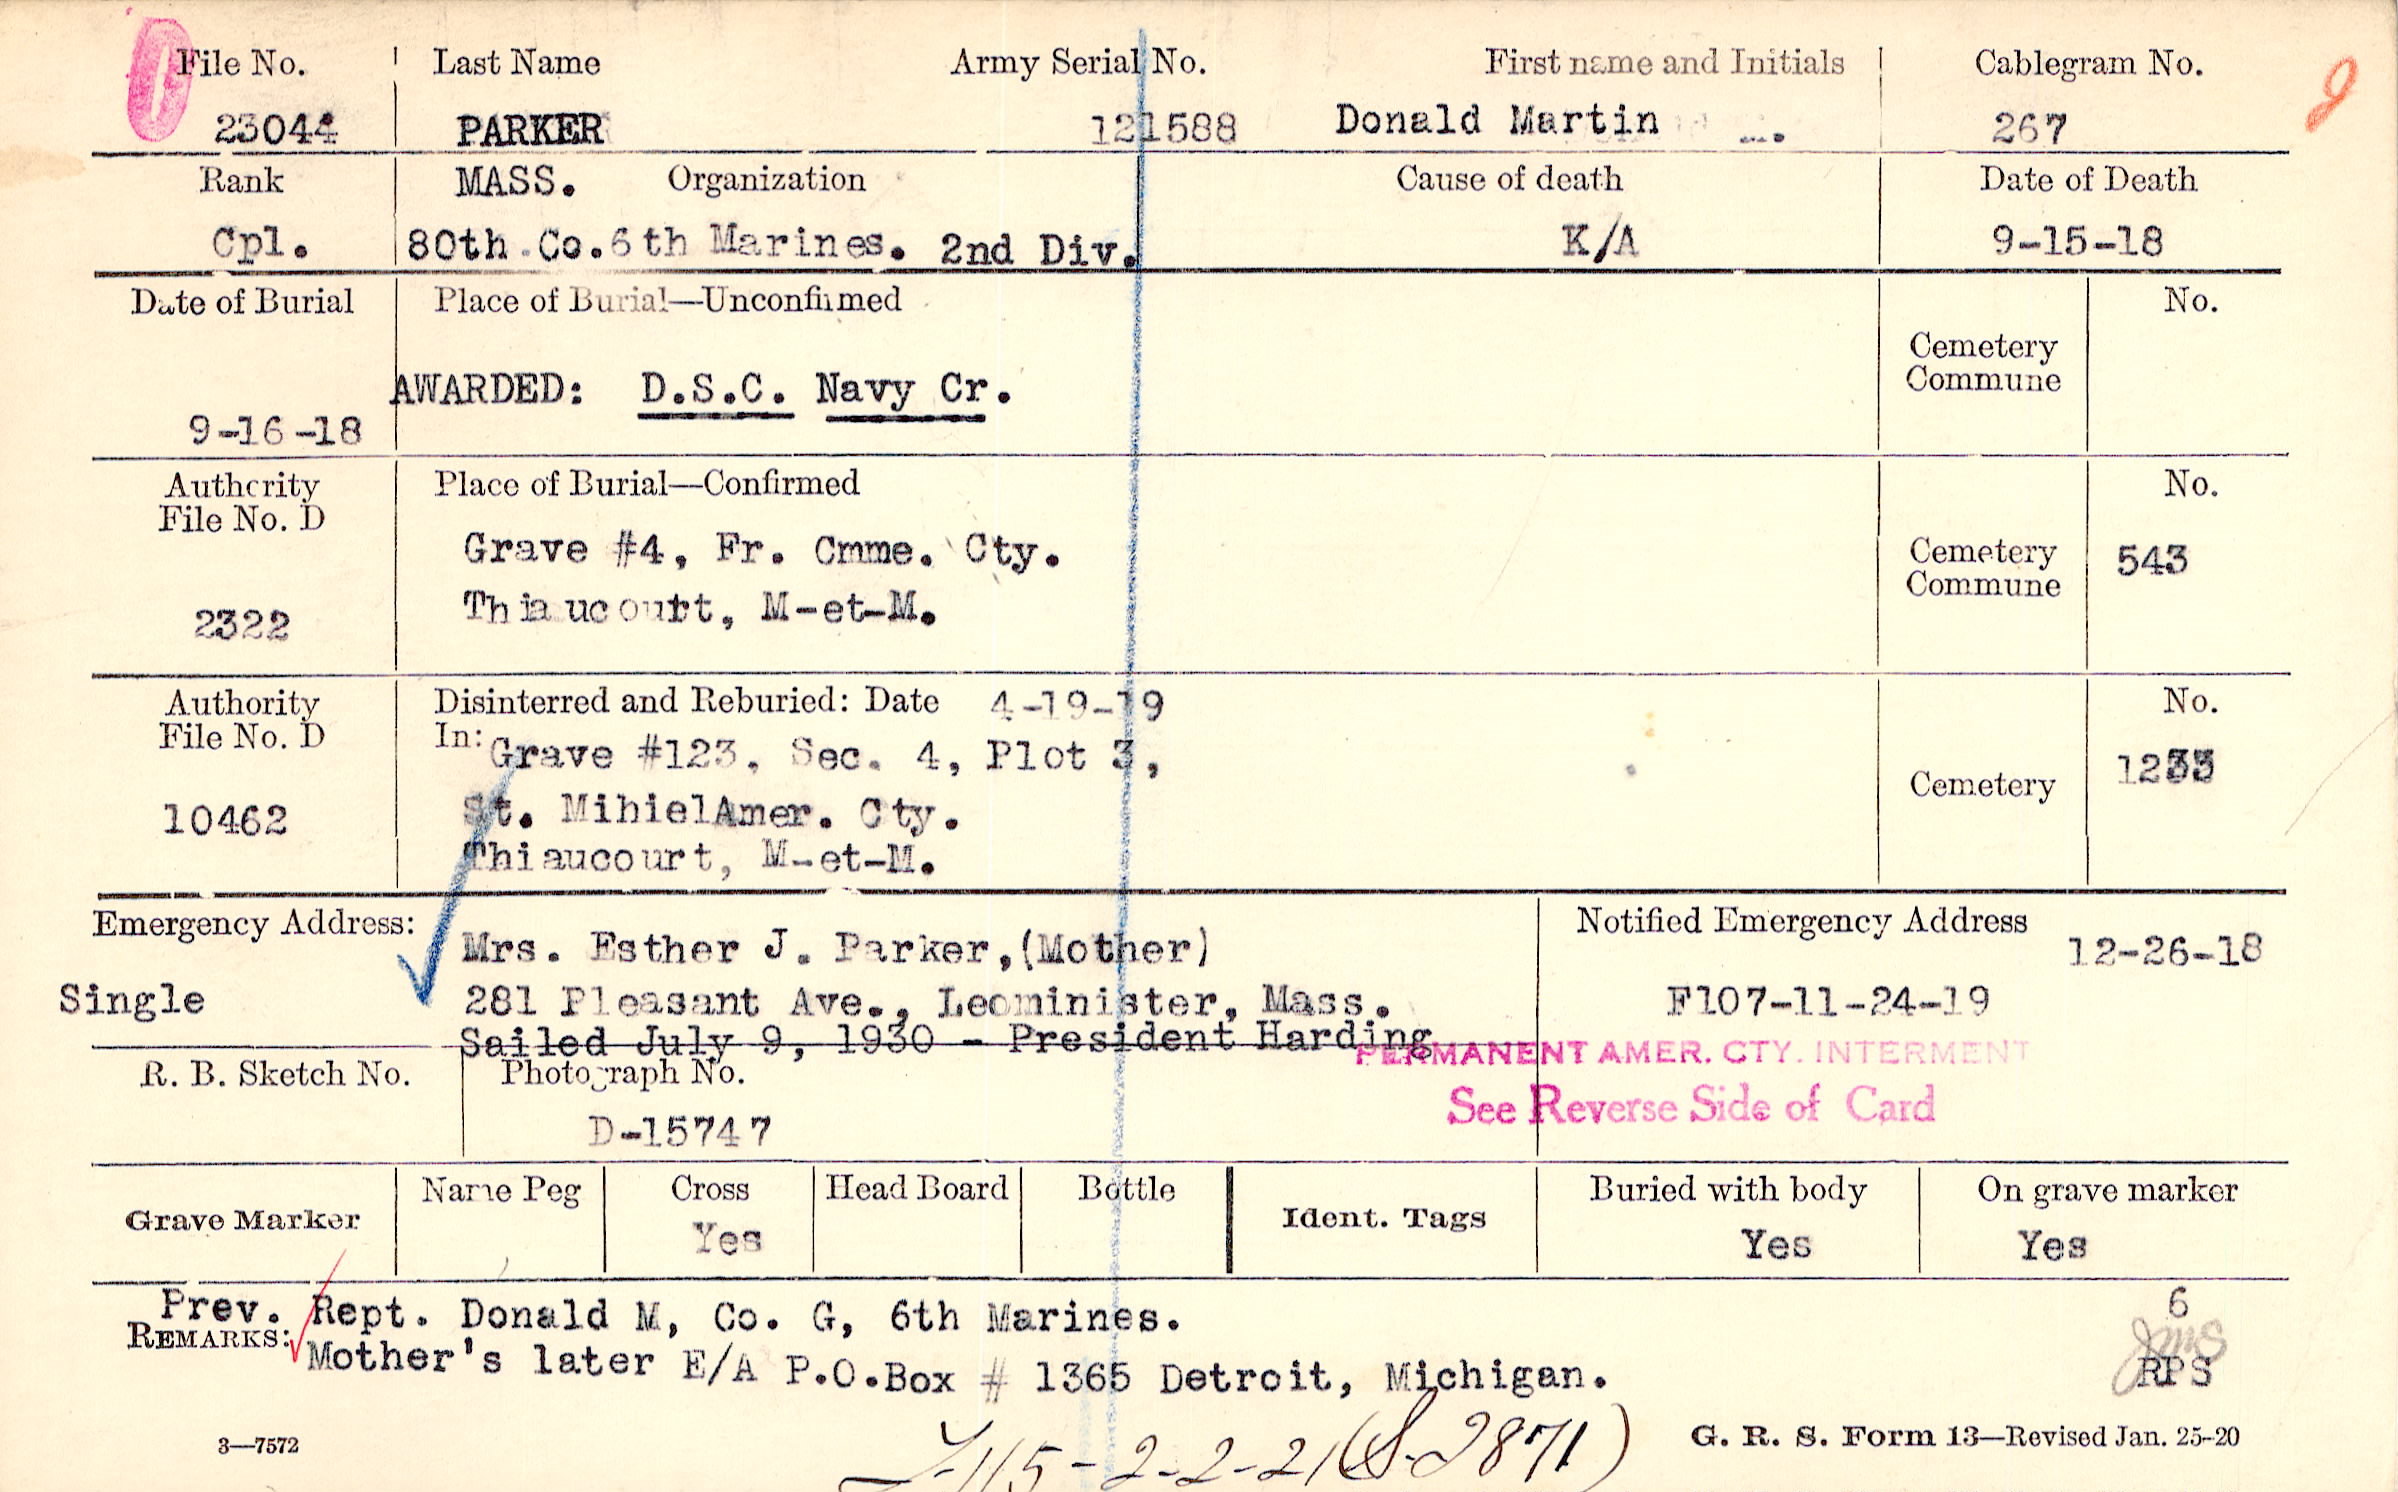 File No. Last Name Army Serial No. First name and Initials Cablegram No.
23044 PARKER 121588 Donald Martin 267
Rank MASS. Organization Cause of death Date of Death
Cpl. 80th Co. 6th Marines. 2nd Div. K/A 9-15-18
Date of Burial Place of Burial—Unconfirmed No.
Cemetery
Commune
AWARDED: D.S.C. Navy Cr.
9-16-18
Authority Place of Burial—Confirmed No.
File No. D
Grave #4, Fr. Cmme. Cty. Cemetery 543
Commune
2322 Thiaucourt, M-et-M.
Authority Disinterred and Reburied: Date 4-19-19 No.
File No. D In: Grave #123, Sec. 4, Plot 3, 1233
Cemetery
10462 St. Mihiel Amer. Cty.
Thiaucourt, M-et-M.
Emergency Address: Notified Emergency Address
Mrs. Esther J. Parker,(Mother) 12-26-18
Single 281 Pleasant Ave., Leominister, Mass. F107-11-24-19
Sailed July 9, 1930 - President Harding
PERMANENT AMER. CTY. INTERMENT
R. B. Sketch No. Photograph No.
See Reverse Side of Card
D-15747
Grave Marker Name Peg Cross Head Board Bottle Ident. Tags Buried with body On grave marker
Yes Yes Yes
Prev. Rept. Donald M, Co. G, 6th Marines. 6
REMARKS: Mother's later E/A P.O.Box # 1365 Detroit, Michigan. RPS
3—7572 G. R. S. Form 13—Revised Jan. 25-20
115-2-2-21(S-2871)